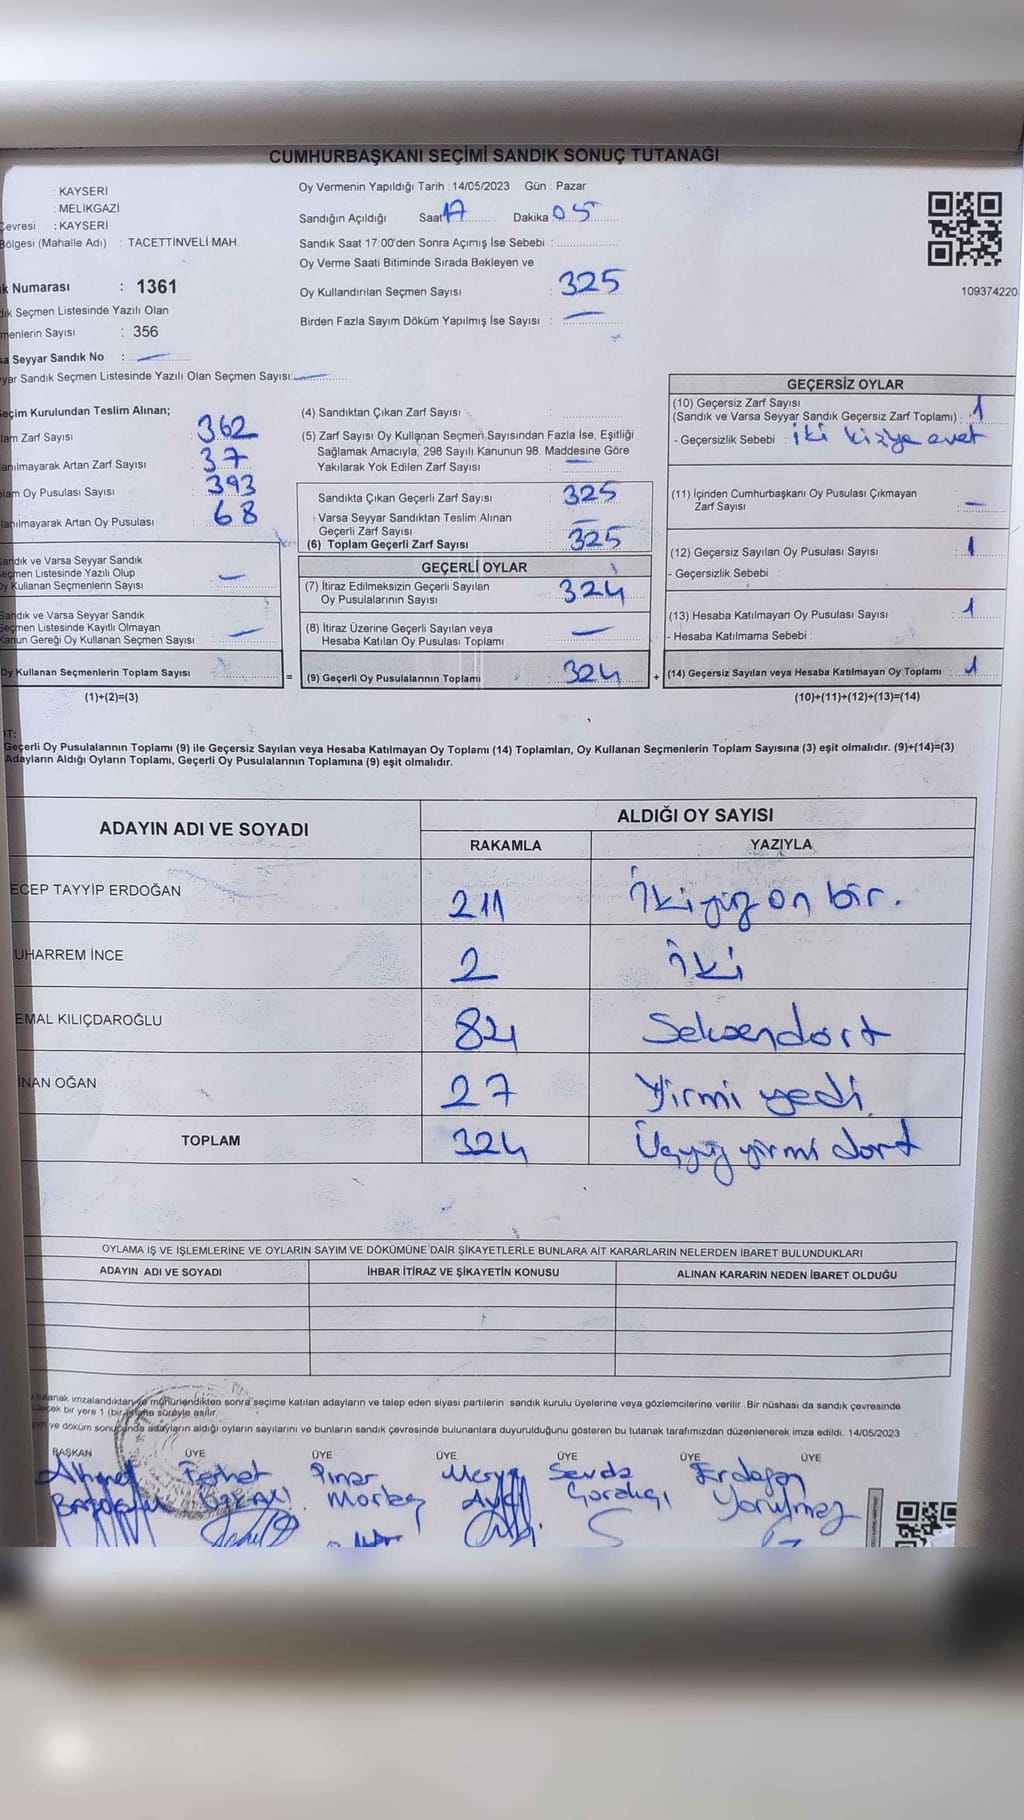 CUMHURBAŞKANI SEÇİMİ SANDIK SONUÇ TUTANAĞI
: KAYSERİ
: MELİKGAZİ
Çevresi : KAYSERİ
Bölgesi (Mahalle Adı) : TACETTİNVELİ MAH.
k Numarası : 1361
dık Seçmen Listesinde Yazılı Olan
menlerin Sayısı : 356
sa Seyyar Sandık No :
yar Sandık Seçmen Listesinde Yazılı Olan Seçmen Sayısı:
Oy Vermenin Yapıldığı Tarih : 14/05/2023 Gün : Pazar
Sandığın Açıldığı Saat 17 Dakika 05
Sandık Saat 17:00'den Sonra Açımış İse Sebebi :
Oy Verme Saati Bitiminde Sırada Bekleyen ve
Oy Kullandırılan Seçmen Sayısı : 325
Birden Fazla Sayım Döküm Yapılmış İse Sayısı : —
109374220
eçim Kurulundan Teslim Alınan;
lam Zarf Sayısı : 362
anılmayarak Artan Zarf Sayısı : 37
lam Oy Pusulası Sayısı : 393
lanılmayarak Artan Oy Pusulası : 68
Sandık ve Varsa Seyyar Sandık
eçmen Listesinde Yazılı Olup
Oy Kullanan Seçmenlerin Sayısı : —
Sandık ve Varsa Seyyar Sandık
Seçmen Listesinde Kayıtlı Olmayan
Kanun Gereği Oy Kullanan Seçmen Sayısı : —
Oy Kullanan Seçmenlerin Toplam Sayısı :
(1)+(2)=(3)
(4) Sandıktan Çıkan Zarf Sayısı :
(5) Zarf Sayısı Oy Kullanan Seçmen Sayısından Fazla İse, Eşitliği
Sağlamak Amacıyla, 298 Sayılı Kanunun 98. Maddesine Göre
Yakılarak Yok Edilen Zarf Sayısı : —
Sandıkta Çıkan Geçerli Zarf Sayısı : 325
Varsa Seyyar Sandıktan Teslim Alınan
Geçerli Zarf Sayısı : —
(6) Toplam Geçerli Zarf Sayısı : 325
GEÇERLİ OYLAR
(7) İtiraz Edilmeksizin Geçerli Sayılan
Oy Pusulalarının Sayısı : 324
(8) İtiraz Üzerine Geçerli Sayılan veya
Hesaba Katılan Oy Pusulası Toplamı : —
= (9) Geçerli Oy Pusulalarının Toplamı : 324 +
GEÇERSİZ OYLAR
(10) Geçersiz Zarf Sayısı
(Sandık ve Varsa Seyyar Sandık Geçersiz Zarf Toplamı) : 1
- Geçersizlik Sebebi : iki kişiye evet
(11) İçinden Cumhurbaşkanı Oy Pusulası Çıkmayan
Zarf Sayısı : —
(12) Geçersiz Sayılan Oy Pusulası Sayısı : 1
- Geçersizlik Sebebi :
(13) Hesaba Katılmayan Oy Pusulası Sayısı : 1
- Hesaba Katılmama Sebebi :
(14) Geçersiz Sayılan veya Hesaba Katılmayan Oy Toplamı : 1
(10)+(11)+(12)+(13)=(14)
OT:
Geçerli Oy Pusulalarının Toplamı (9) ile Geçersiz Sayılan veya Hesaba Katılmayan Oy Toplamı (14) Toplamları, Oy Kullanan Seçmenlerin Toplam Sayısına (3) eşit olmalıdır. (9)+(14)=(3)
Adayların Aldığı Oyların Toplamı, Geçerli Oy Pusulalarının Toplamına (9) eşit olmalıdır.
ADAYIN ADI VE SOYADI ALDIĞI OY SAYISI
RAKAMLA YAZIYLA
ECEP TAYYİP ERDOĞAN 211 İkiyüz on bir.
UHARREM İNCE 2 İki
EMAL KILIÇDAROĞLU 84 Seksendört
İNAN OĞAN 27 Yirmi yedi.
TOPLAM 324 Üçyüz yirmi dört
OYLAMA İŞ VE İŞLEMLERİNE VE OYLARIN SAYIM VE DÖKÜMÜNE DAİR ŞİKAYETLERLE BUNLARA AİT KARARLARIN NELERDEN İBARET BULUNDUKLARI
ADAYIN ADI VE SOYADI İHBAR İTİRAZ VE ŞİKAYETİN KONUSU ALINAN KARARIN NEDEN İBARET OLDUĞU
tutanak imzalandıktan ve mühürlendikten sonra seçime katılan adayların ve talep eden siyasi partilerin sandık kurulu üyelerine veya gözlemcilerine verilir. Bir nüshası da sandık çevresinde
bir yere 1 (bir) hafta süreyle asılır.
ve döküm sonucunda adayların aldığı oyların sayılarını ve bunların sandık çevresinde bulunanlara duyurulduğunu gösteren bu tutanak tarafımızdan düzenlenerek imza edildi. 14/05/2023
BAŞKAN ÜYE ÜYE ÜYE ÜYE ÜYE ÜYE
Ahmet Ferhat Pınar Meryem Sevda Erdoğan
Yorulmaz